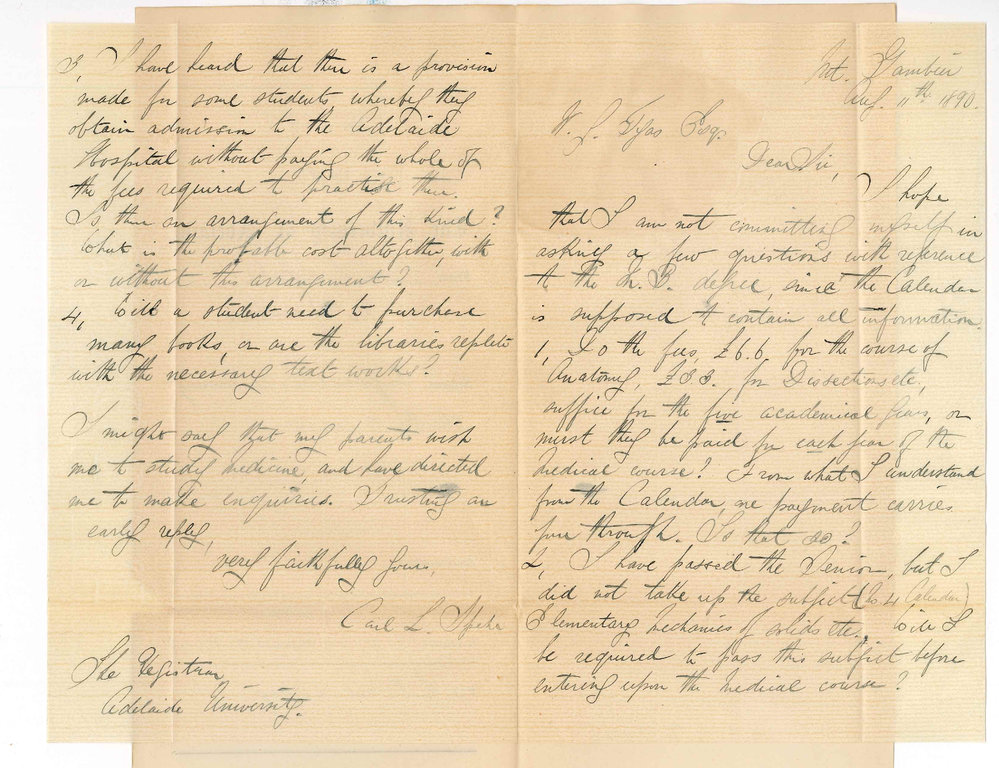 Mt. Gambier
Aug. 11th 1890.
W. J. Tyas Esq.
Dear Sir,
I hope
that I am not committing myself in
asking a few questions with reference
to the M.B. degree, since the Calendar
is supposed to contain all information.
1, Do the fees, £6.6. for the course of
Anatomy, £3 3. for Dissections etc,
suffice for the five academical years, or
must they be paid for each year of the
Medical course? From what I understand
from the Calendar, one payment carries
you through. Is that so?
2, I have passed the Senior, but I
did not take up the subject (No 4 Calendar)
Elementary Mechanics of solids etc. Will I
be required to pass this subject before
entering upon the Medical course?
3, I have heard that there is a provision
made for some students whereby they
obtain admission to the Adelaide
Hospital without paying the whole of
the fees required to practise there.
Is there an arrangement of this kind?
What is the probable cost altogether, with
or without this arrangement?
4, Will a student need to purchase
many books, or are the libraries replete
with the necessary text works?
I might say that my parents wish
me to study medicine, and have directed
me to make enquiries. Trusting an
early reply,
very faithfully yours,
Carl L.
The Registrar,
Adelaide University.